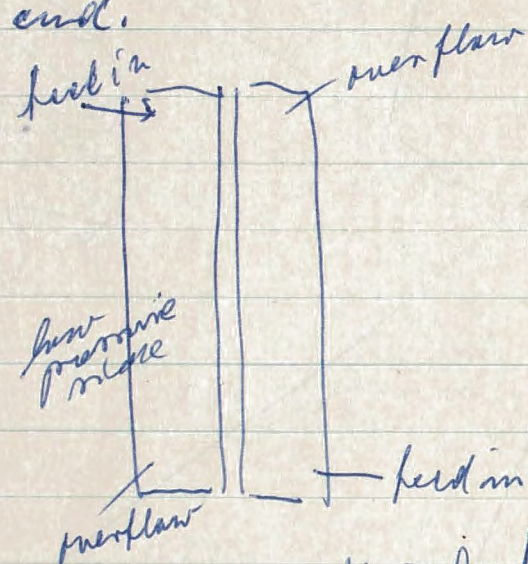 end.
feed in
overflow
low
pressure
side
feed in
overflow